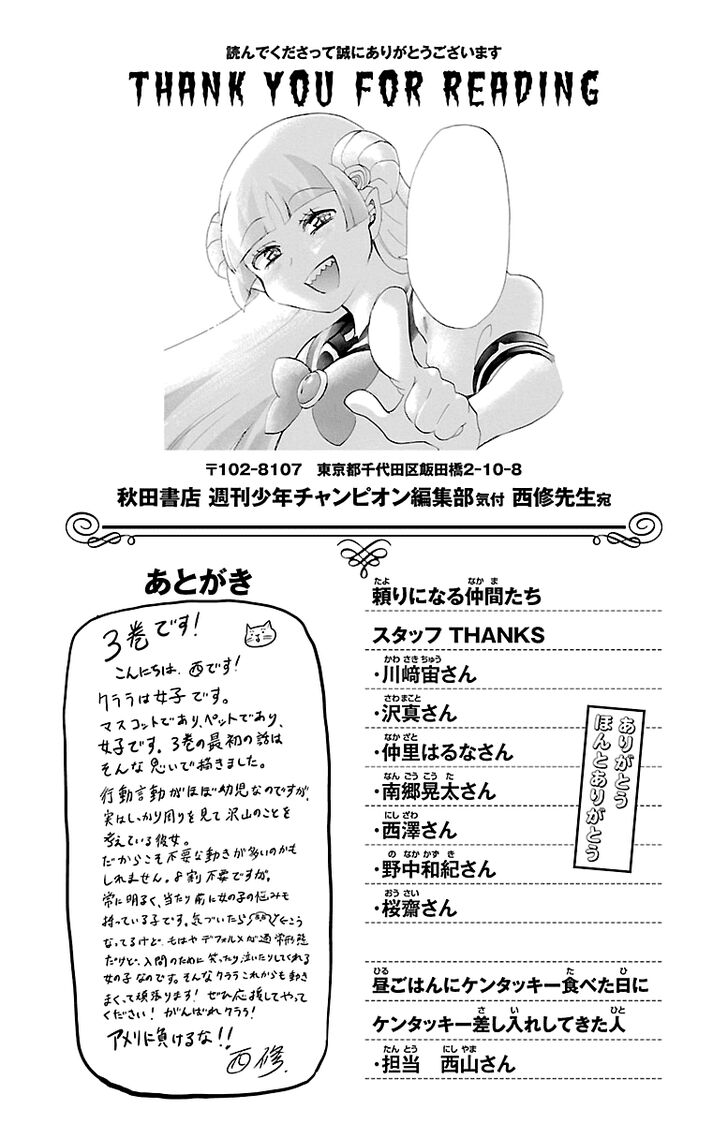 読んでくださって誠にありがとうございます
THANK YOU FOR READING
〒102-8107 東京都千代田区飯田橋2-10-8
秋田書店 週刊少年チャンピオン編集部気付 西修先生宛
あとがき
3巻です!
こんにちは、西です!
クララは女子です。
マスコットであり、ペットであり、
女子です。3巻の最初の話は
そんな思いで描きました。
行動言動がほぼ幼児なのですが、
実はしっかり周りを見て沢山のことを
考えている彼女。
だからこそ不要な動きが多いのかも
しれません。8割不要ですが。
常に明るく、当たり前に女の子の悩みも
持っている子です。気づいたら こう
なってるけど、もはやデフォルメが通常形態
だけど、入間のために笑ったり泣いたりしてくれる
女の子なのです。そんなクララこれからも動き
まくって頑張ります!ぜひ応援してやって
ください!がんばれクララ!
アメリに負けるな!!
西修.
頼りになる仲間たち
たよ なかま
スタッフ THANKS
かわさきちゅう
・川﨑宙さん
さわまこと
・沢真さん
なかざと
・仲里はるなさん
なんごうこうた
・南郷晃太さん
にしざわ
・西澤さん
のなかかずき
・野中和紀さん
おうさい
・桜齋さん
ありがとう
ほんとありがとう
ひる た ひ
昼ごはんにケンタッキー食べた日に
さ い ひと
ケンタッキー差し入れしてきた人
たんとう にしやま
・担当 西山さん